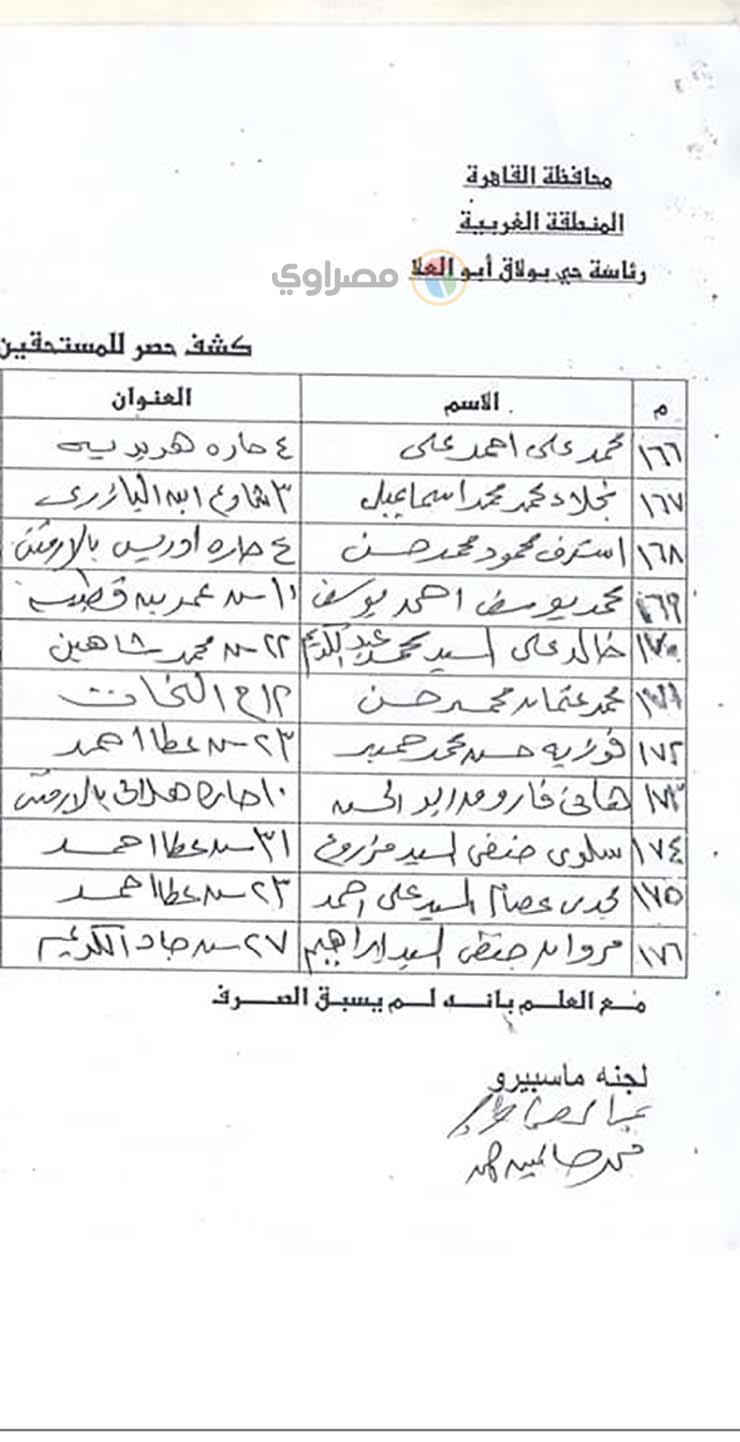 محافظة القاهرة
المنطقة الغربية
رئاسة حي بولاق أبو العلا
مصراوي
كشف حصر للمستحقين
م الاسم العنوان
١٦٦ محمد على احمد على ٤ حاره
١٦٧ نجلاء محمد محمد اسماعيل ٣ شارع ابن البازرى
١٦٨ اشرف محمود محمد حسن ٤ حاره ادريس
١٦٩ محمد يوسف احمد يوسف ١٠ ش عمر بن قطبيه
١٧٠ خالد على السيد محمد عبد الكريم ٢٢ ش محمد شاهين
١٧١ محمد عثمان محمد حسن ١٢
١٧٢ فوزيه حسن محمد ٢٣ ش عطا احمد
١٧٣ هانى فاروق ابو الحسن ١٠ حاره
١٧٤ سلوى حنفى السيد مرزوق ٣١ ش عطا احمد
١٧٥ مجدى عصام السيد على احمد ٢٣ ش عطا احمد
١٧٦ مروان حنفى السيد ابراهيم ٢٧ ش جاد الكريم
مع العلم بانه لم يسبق الصرف
لجنه ماسبيرو